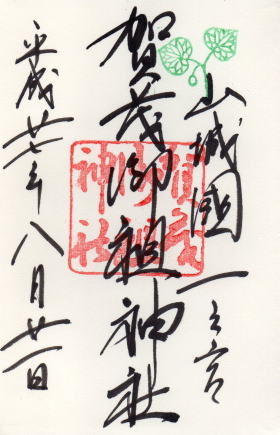 山城國一之宮
賀茂御祖神社
平成廿七年八月廿一日
賀茂御祖神社